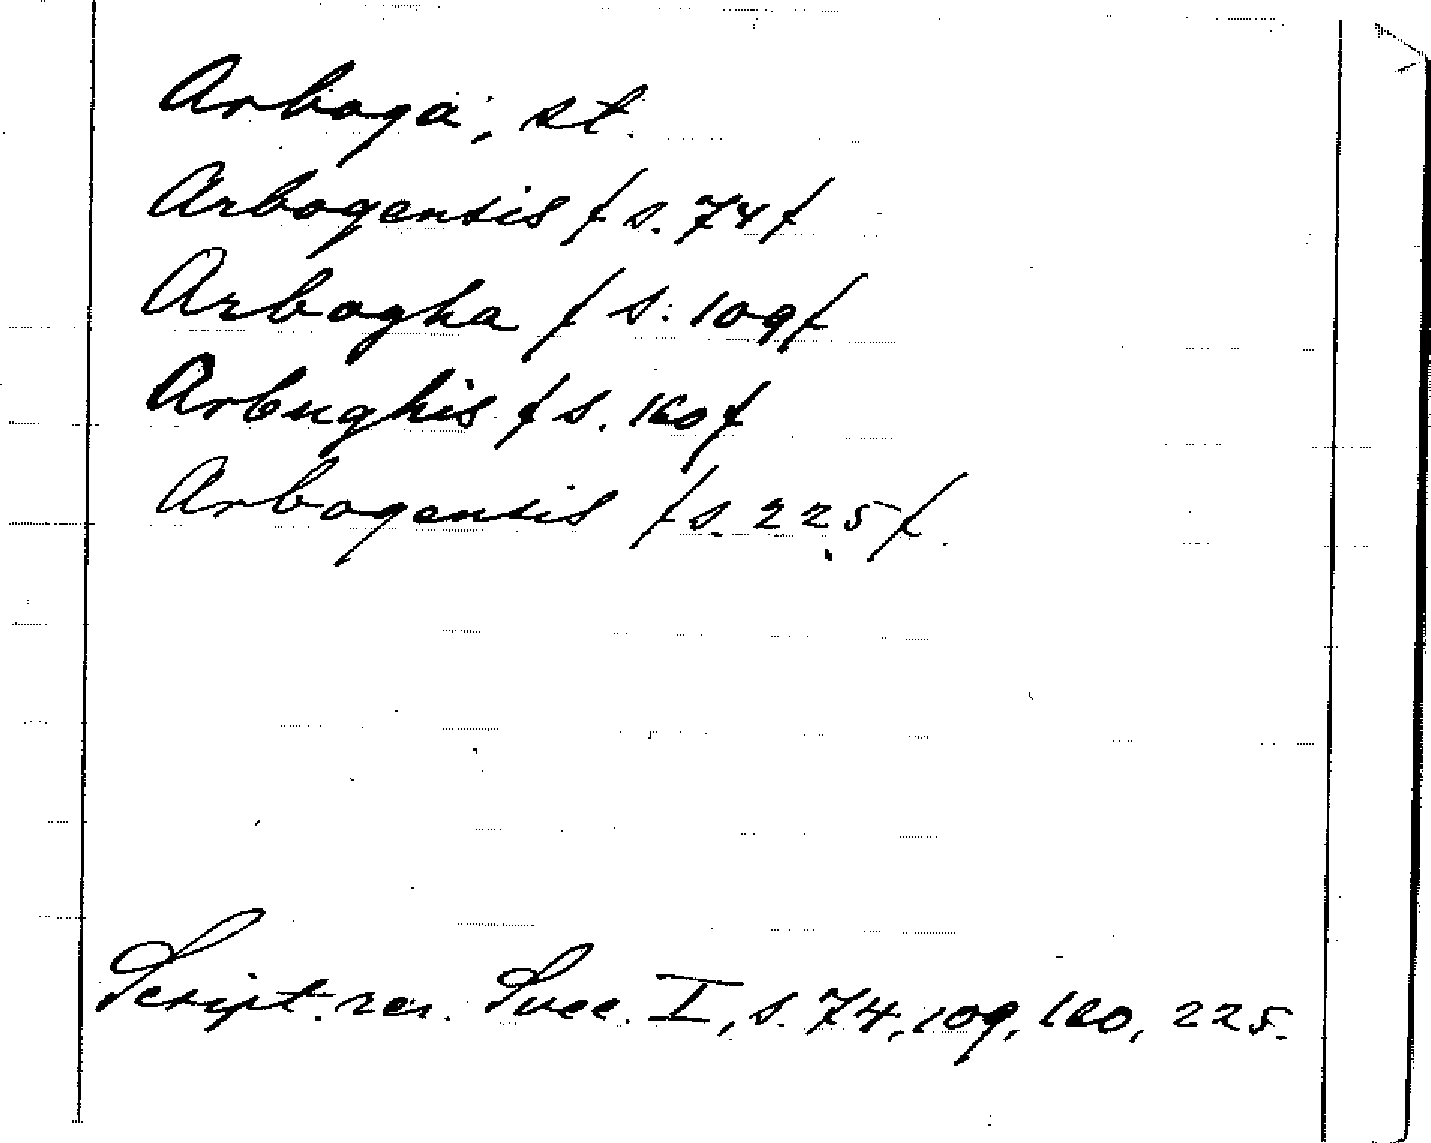 Arboga, st.
Arbogensis /s. 74/
Arbogha /s. 109/
Arbughis /s. 160/
Arbogensis /s. 225/.
Script. rer. Svec. I, s. 74, 109, 160, 225.